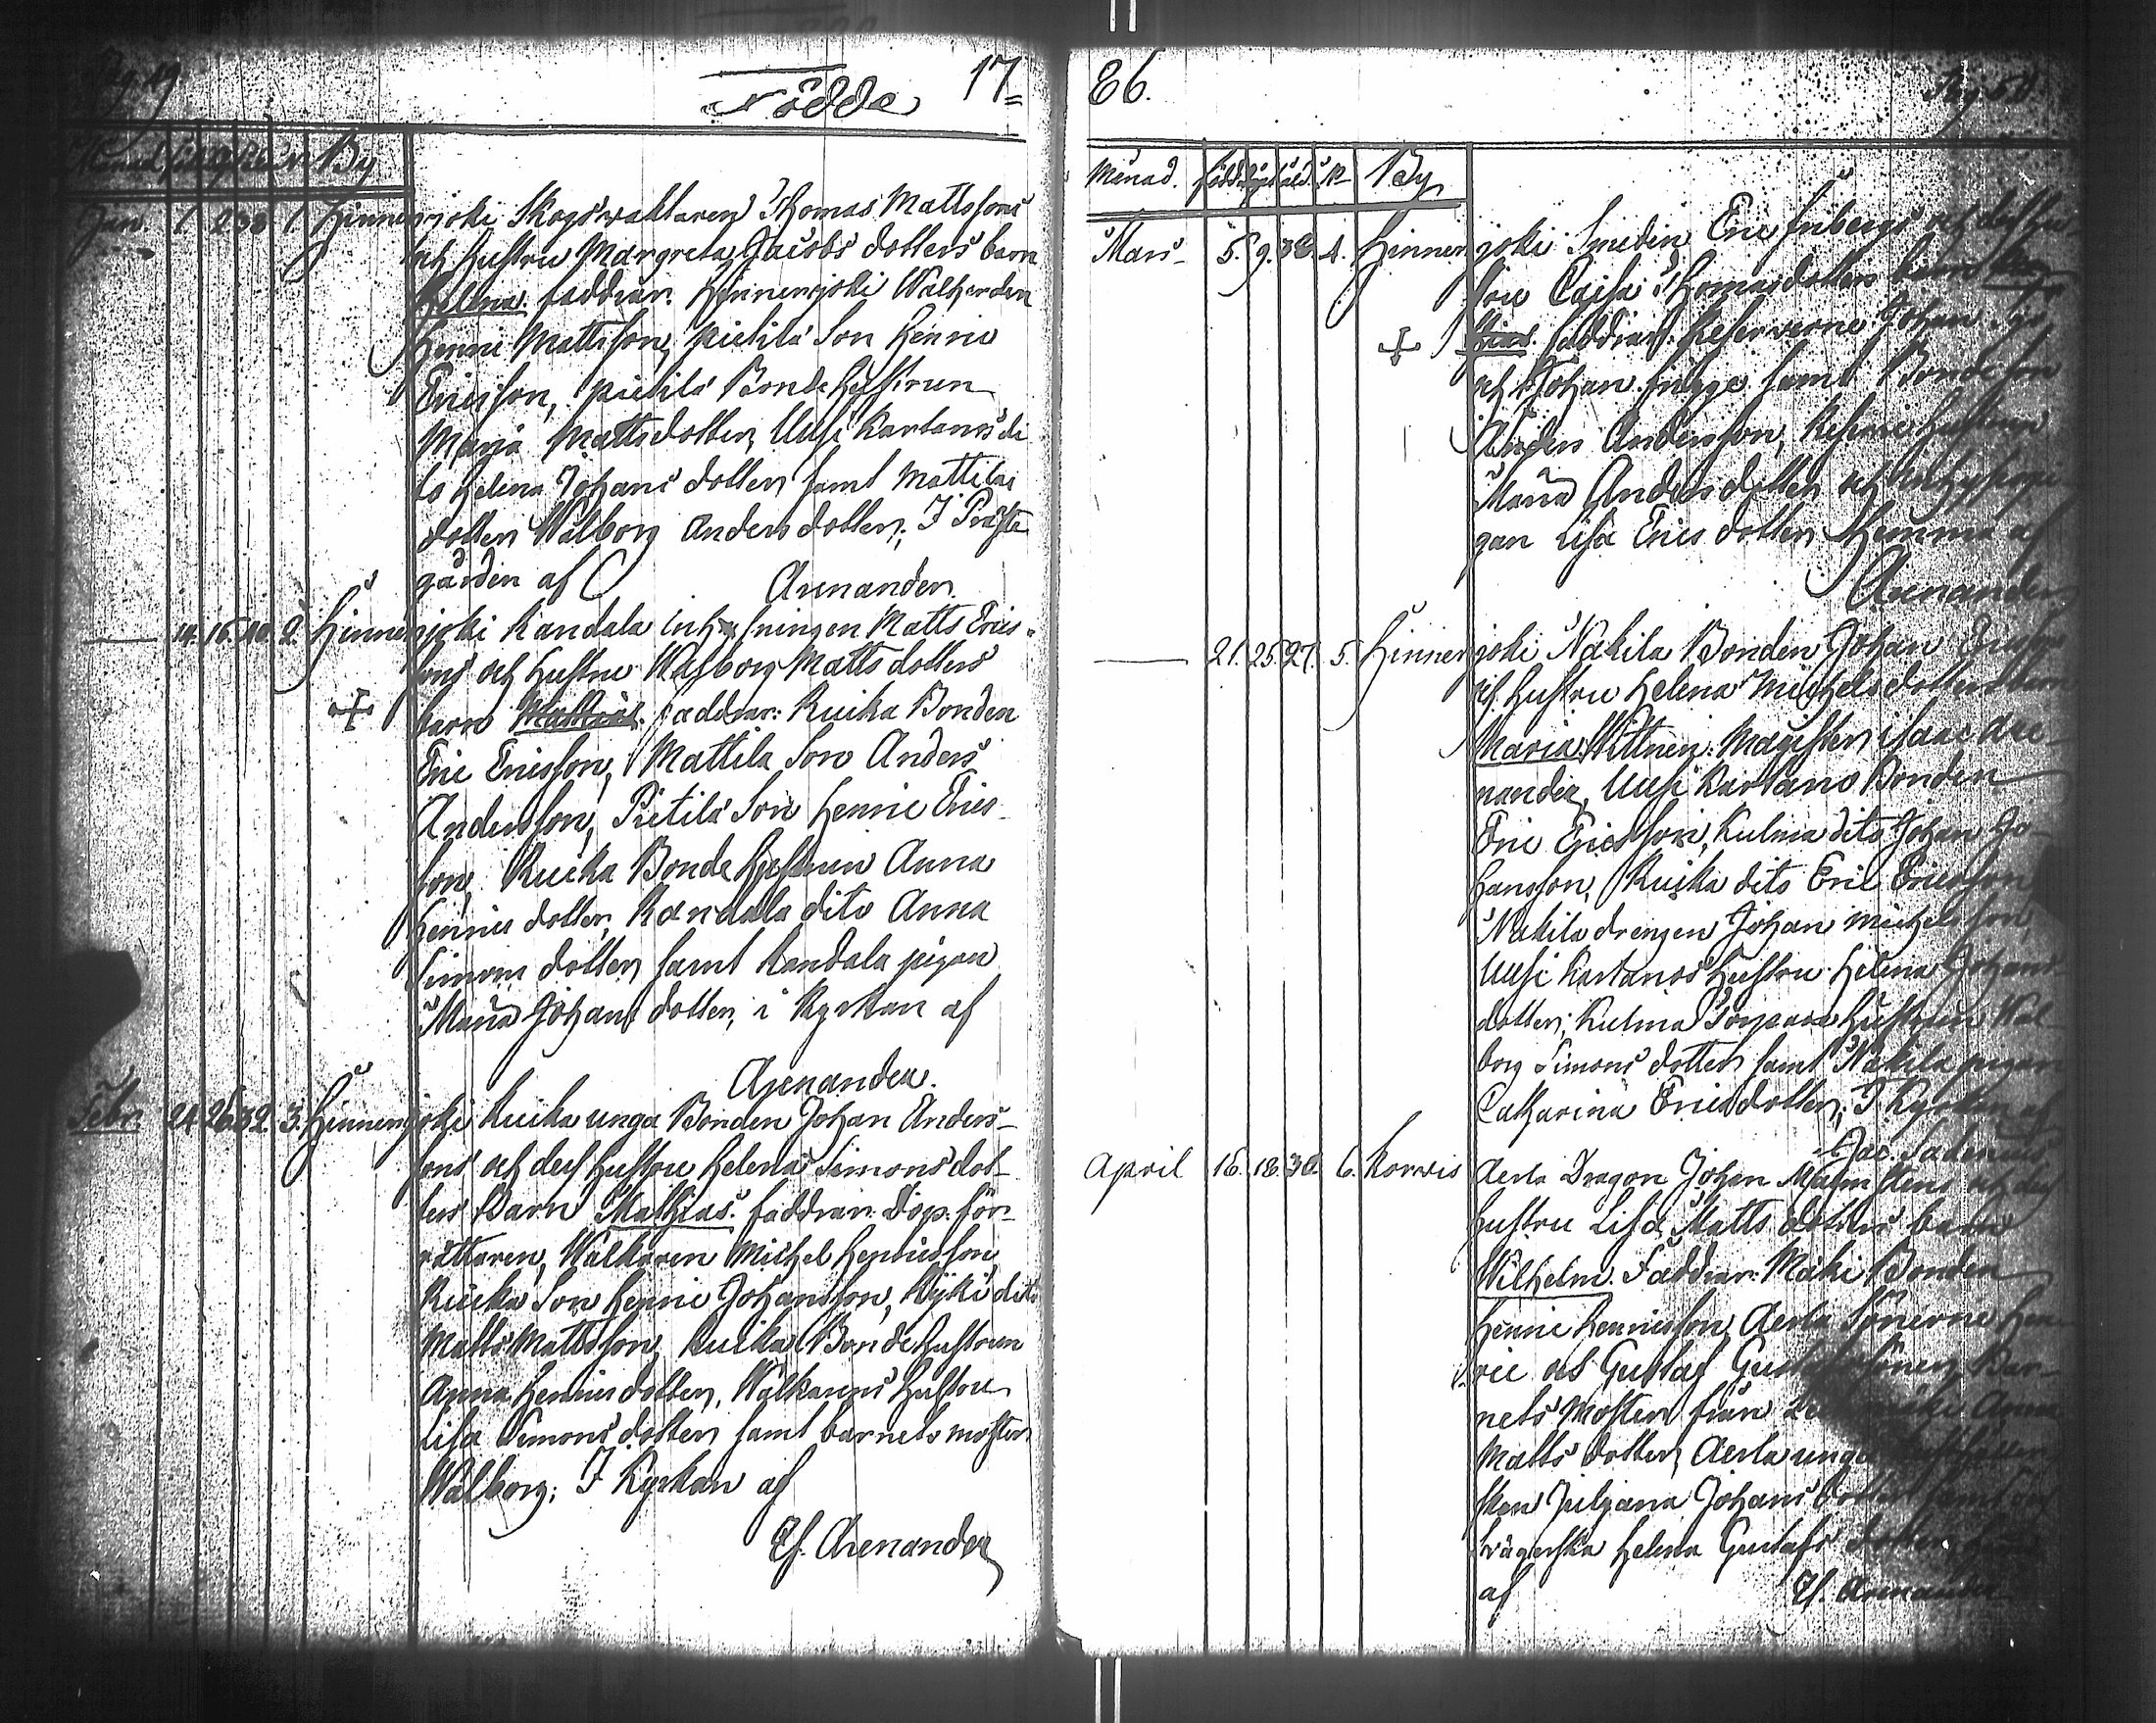 Födde 17
Månad By
Jan. 1 2 38 1 Hinnerjoki Skogswaktaren Thomas Mattssons
och hustru Margreta Jacobs dotters barn
Helena. faddrar. Hinnerjoki
Henric Mattsson, Pietilä Son Henric
Ericsson, Pietilä Bonde hustrun
Maria Matts dotter, Uusi Kartanos di
to Helena Johans dotter samt Mattilas
dotter Walborg Anders dotter; I Präste
gården af Arenander.
14. 16. 40. 2. Hinnerjoki Kandala inhysningen Matts Erics-
sons och hustru Walborg Matts dotters
barn faddrar: Ruika Bonden
Eric Ericsson, Mattila Son Anders
Andersson, Pietilä Son Henric Erics-
son, Ruika Bonde hustrun Anna
Henrics dotter, Kandala dito Anna
Simons dotter samt Kandala pigan
Maria Johans dotter, i Kyrkan af
Arenander.
Febr. 24 26 32. 3. Hinnerjoki Ruika unga Bonden Johan Anders-
sons och dess hustru Helena Simons dot-
ters Barn Mathias. faddrar. Dop. för-
rättaren, Walkaren Michel Henricsson,
Ruika Son Henric Johansson, Kyki dito
Matts Mattsson, Ruika Bonde hustrun
Anna Henrics dotter, Walkarens hustru
Lisa Simons dotter samt barnets moster
Walborg; I Kyrkan af
Ef. Arenander
86.
Månad. född By
Mars 5. 9. 38. 4. Hinnerjoki Smeden Eric Fribergs och dess hu
stru Caisa Thomasdotters barn
faddrar. Reserverne Johan
och Johan samt Bonde son
Anders Andersson, Reserve hustrun
Maria Anders dotter och
gan Lisa Erics dotter Hemma af
Arenander
21. 25. 27. 5. Hinnerjoki Nakila Bonden Johan Ericssons
och hustru Helena Michels dotters barn
Maria. Wittnen: Magister Isaac Are-
nander, Uusi Kartano Bonden
Eric Ericsson, Kulma dito Johan Jo-
hansson, Ruika dito Eric Ericsson
Nakila drengen Johan Michelsson
Uusi Kartanos hustru Helena Johans
dotter; Kulma hustrun Wal-
borg Simons dotter samt Nakila pigan
Catharina Erics dotter; I Kyrkan af
April 16. 18. 30. 6. Korwis Aerla Dragon Johan Malmstens och dess
hustru Lisa Matts dotters barn
Wilhelm. Faddrar: Mäki Bonden
Henric Henricsson, Aerla Sönerne Hen-
ric och Gustaf Bar-
nets Moster från Anna
Matts dotter, Aerla unga
Juliana Johans dotter
swägerska Helena Gustafs dotter
af Ef. Arenander